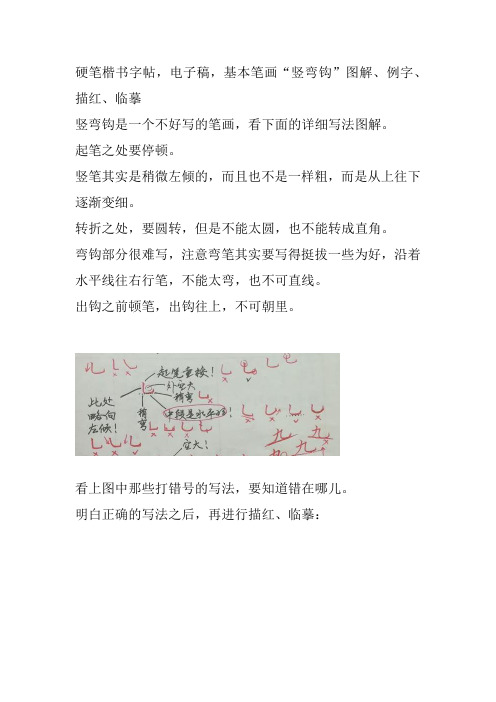 硬笔楷书字帖，电子稿，基本笔画“竖弯钩”图解、例字、
描红、临摹
竖弯钩是一个不好写的笔画，看下面的详细写法图解。
起笔之处要停顿。
竖笔其实是稍微左倾的，而且也不是一样粗，而是从上往下
逐渐变细。
转折之处，要圆转，但是不能太圆，也不能转成直角。
弯钩部分很难写，注意弯笔其实要写得挺拔一些为好，沿着
水平线往右行笔，不能太弯，也不可直线。
出钩之前顿笔，出钩往上，不可朝里。
起笔重按！
稍弯
此处
略向
左倾！
稍
弯
九 九
九
看上图中那些打错号的写法，要知道错在哪儿。
明白正确的写法之后，再进行描红、临摹：